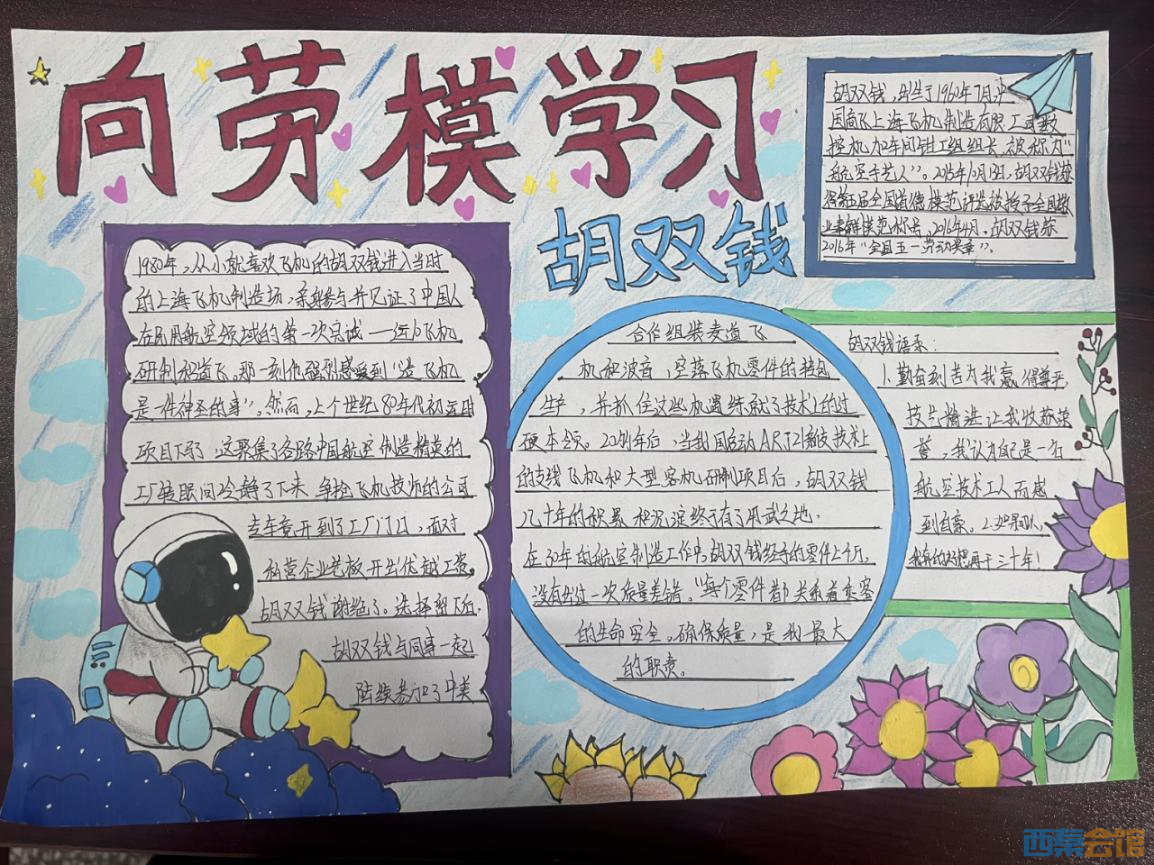 向劳模学习
胡双钱
胡双钱，出生于1960年7月，中
国商飞上海飞机制造有限公司数
控机加车间钳工组组长，被称为“
航空手艺人”。2015年10月13日，胡双钱获
得第五届全国道德模范评选被授予全国敬
业奉献模范称号，2016年4月，胡双钱获
2016年“全国五一劳动奖章”。
1980年，从小就喜欢飞机的胡双钱进入当时
的上海飞机制造场，亲身参与并见证了中国人
在民用航空领域的第一次尝试——运10飞机
研制和首飞。那一刻他强烈感受到“造飞机
是一件神圣的事”。然而，上个世纪80年代初运10
项目下马了，这聚集了各路中国航空制造精英的
工厂转眼间冷静了下来，争抢飞机技师的公司
专车竟开到了工厂门口，面对
私营企业老板开出优越工资，
胡双钱谢绝了。选择留下后，
胡双钱与同事一起
陆续参加了中美
合作组装麦道飞
机和波音，空客飞机零件的转包
生产，并抓住这些机遇练就了技术上的过
硬本领。20年后，当我国启动ARJ21新支技术上
的支线飞机和大型客机研制项目后，胡双钱
几十年的积累和沉淀终于有了用武之地。
在30年的航空制造工作中，胡双钱经手的零件上千万，
没有出过一次质量差错。“每个零件都关系着乘客
的生命安全。确保质量，是我最大
的职责。
胡双钱语录：
1.勤奋刻苦为我赢得尊严，
技术精进让我收获荣
誉，我认为自己是一名
航空技术工人而感
到自豪。2.如果可以，
我真的好想再干三十年！
西幕会馆